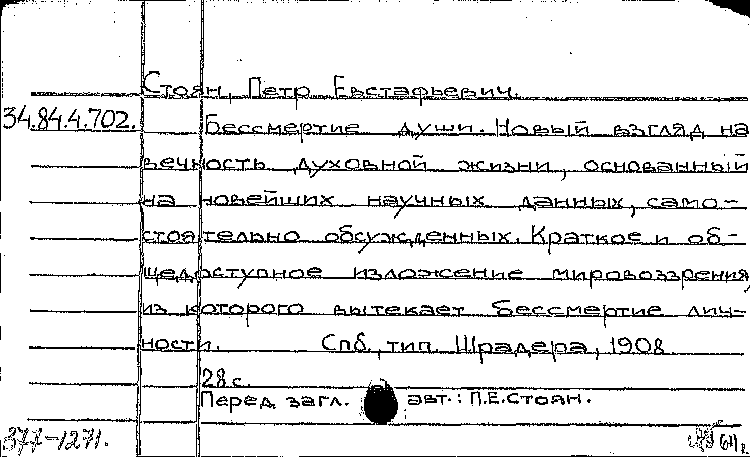 Стоян, Петр Евстафьевич.
34.84.4.702. Бессмертие души. Новый взгляд на
вечность духовной жизни, основанный
на новейших научных данных, само-
стоятельно обсужденных. Краткое и об-
щедоступное изложение мировоззрения,
из которого вытекает бессмертие лич-
ности. Спб., тип. Шрадера, 1908.
28 с.
Перед загл. авт.: П.Е.Стоян.
377-1271.